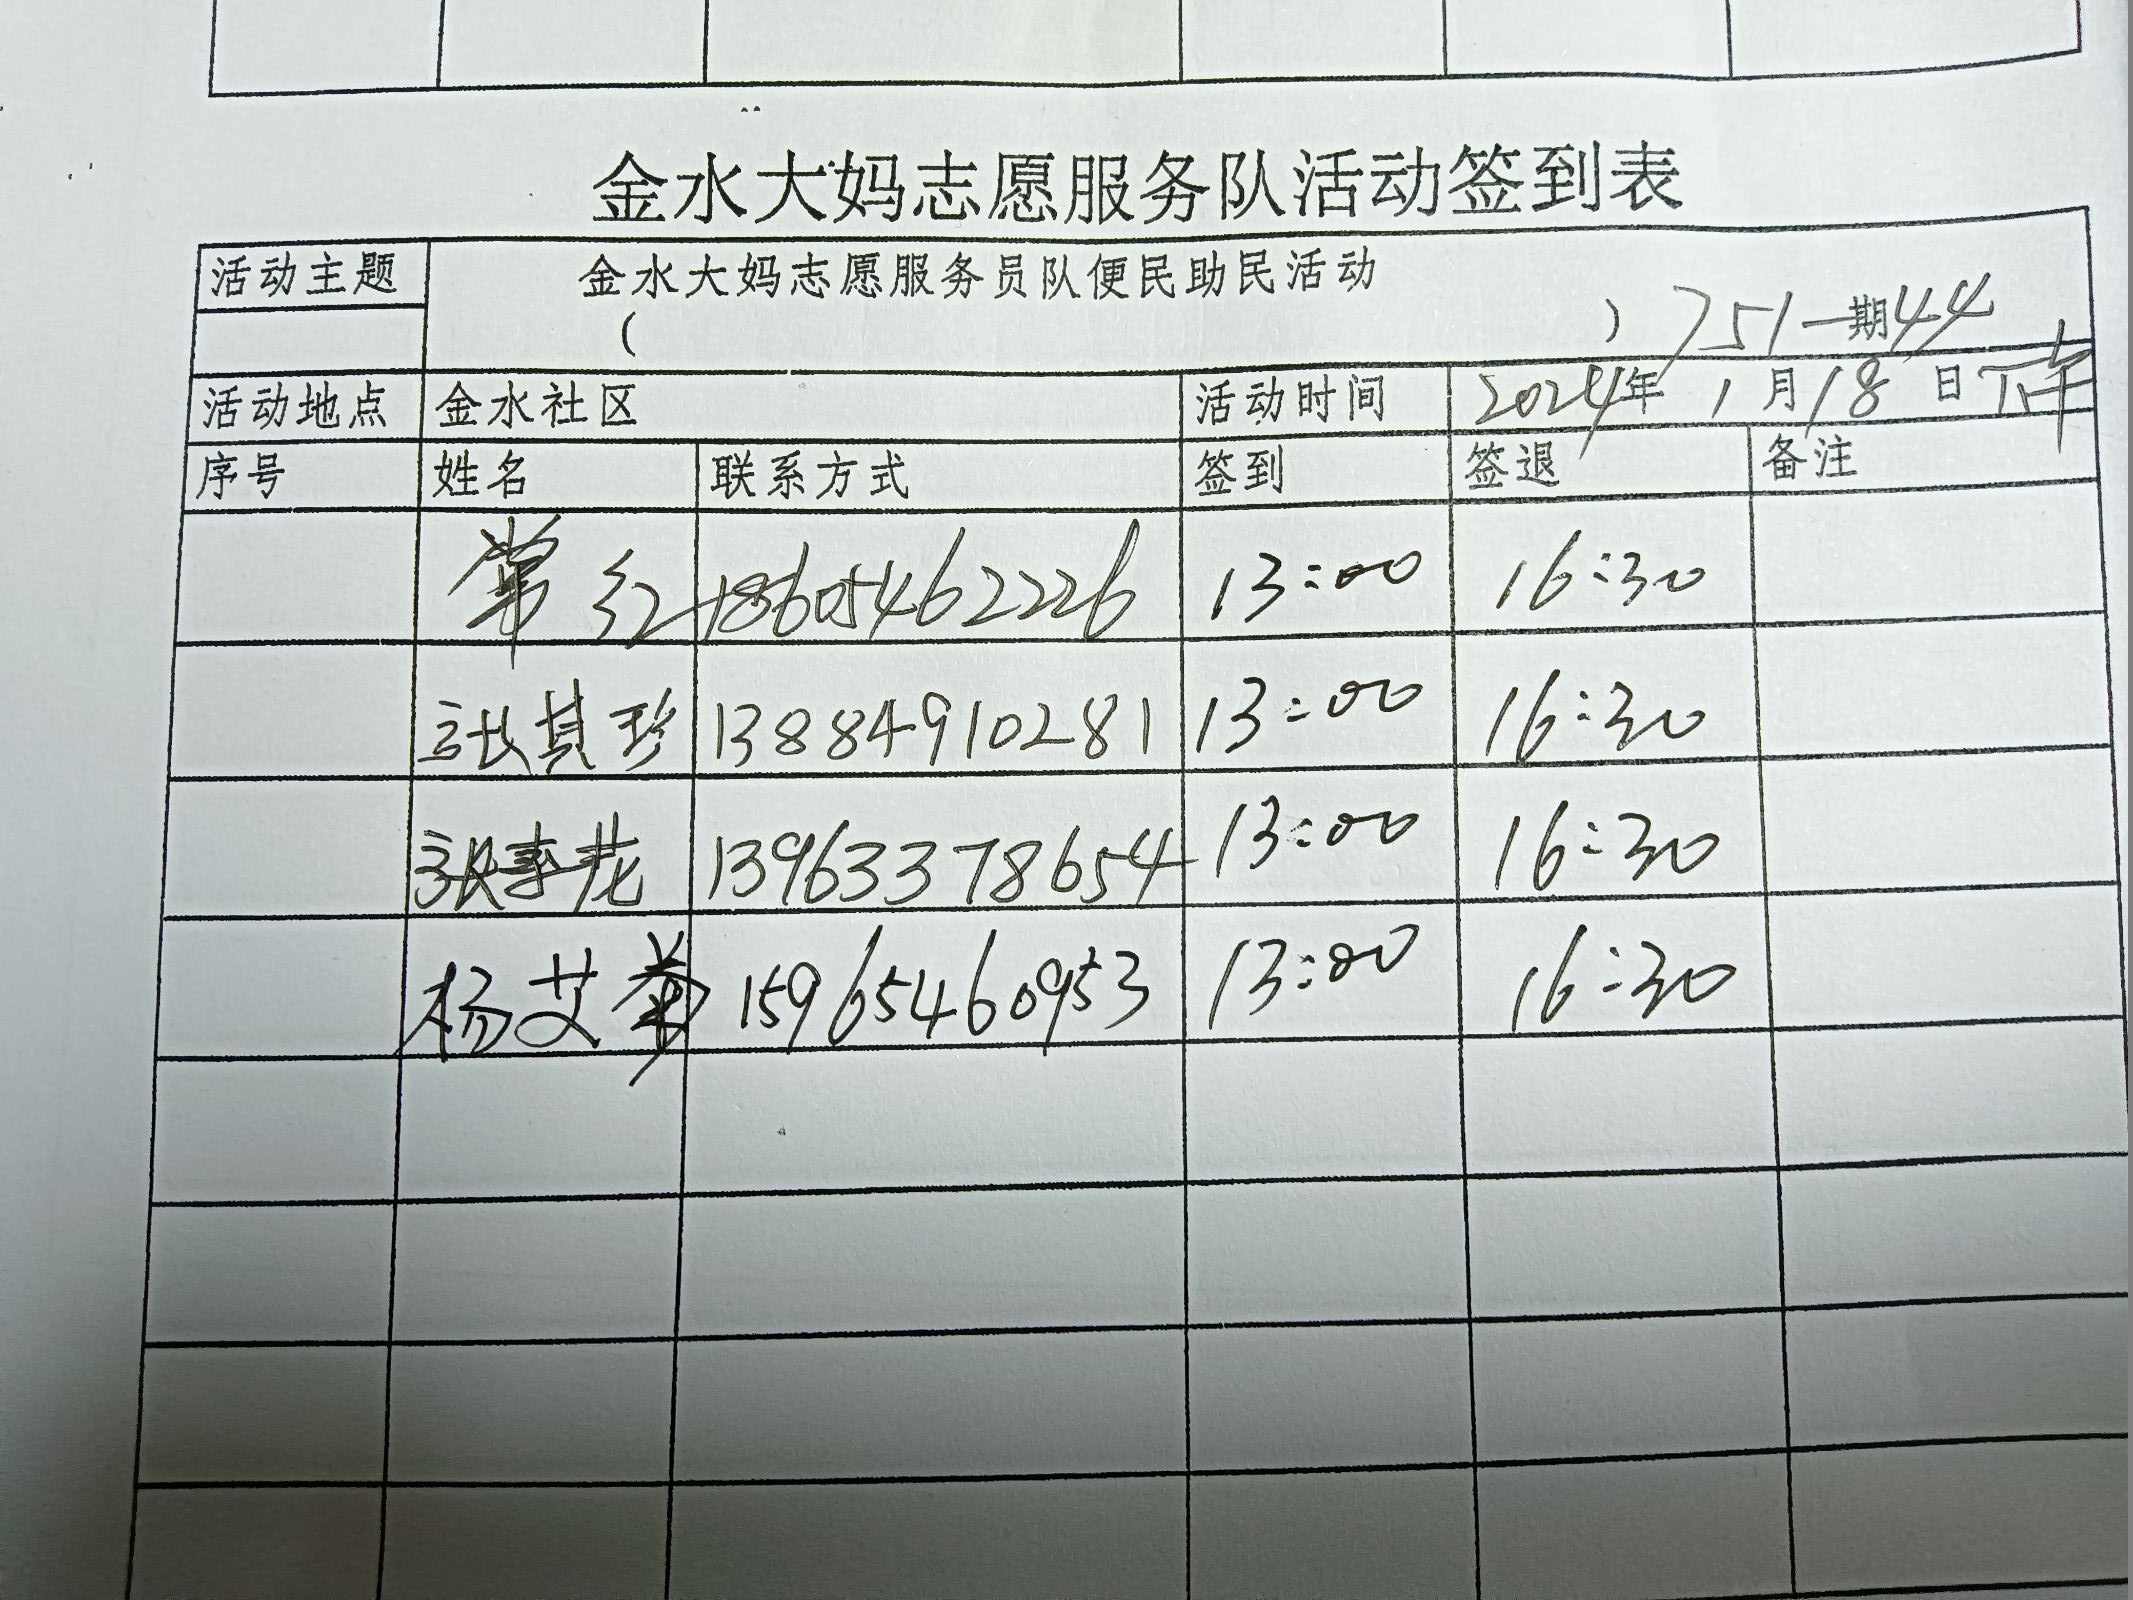 金水大妈志愿服务队活动签到表
活动主题 金水大妈志愿服务员队便民助民活动
( ) 751一期44
活动地点 金水社区 活动时间 2024年1月18日下午
序号 姓名 联系方式 签到 签退 备注
常红 18605462226 13:00 16:30
张其珍 13884910281 13:00 16:30
13963378654 13:00 16:30
杨艾菊 15965460953 13:00 16:30